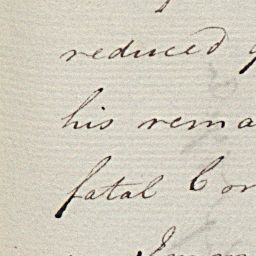 reduced
his rema
fatal Con